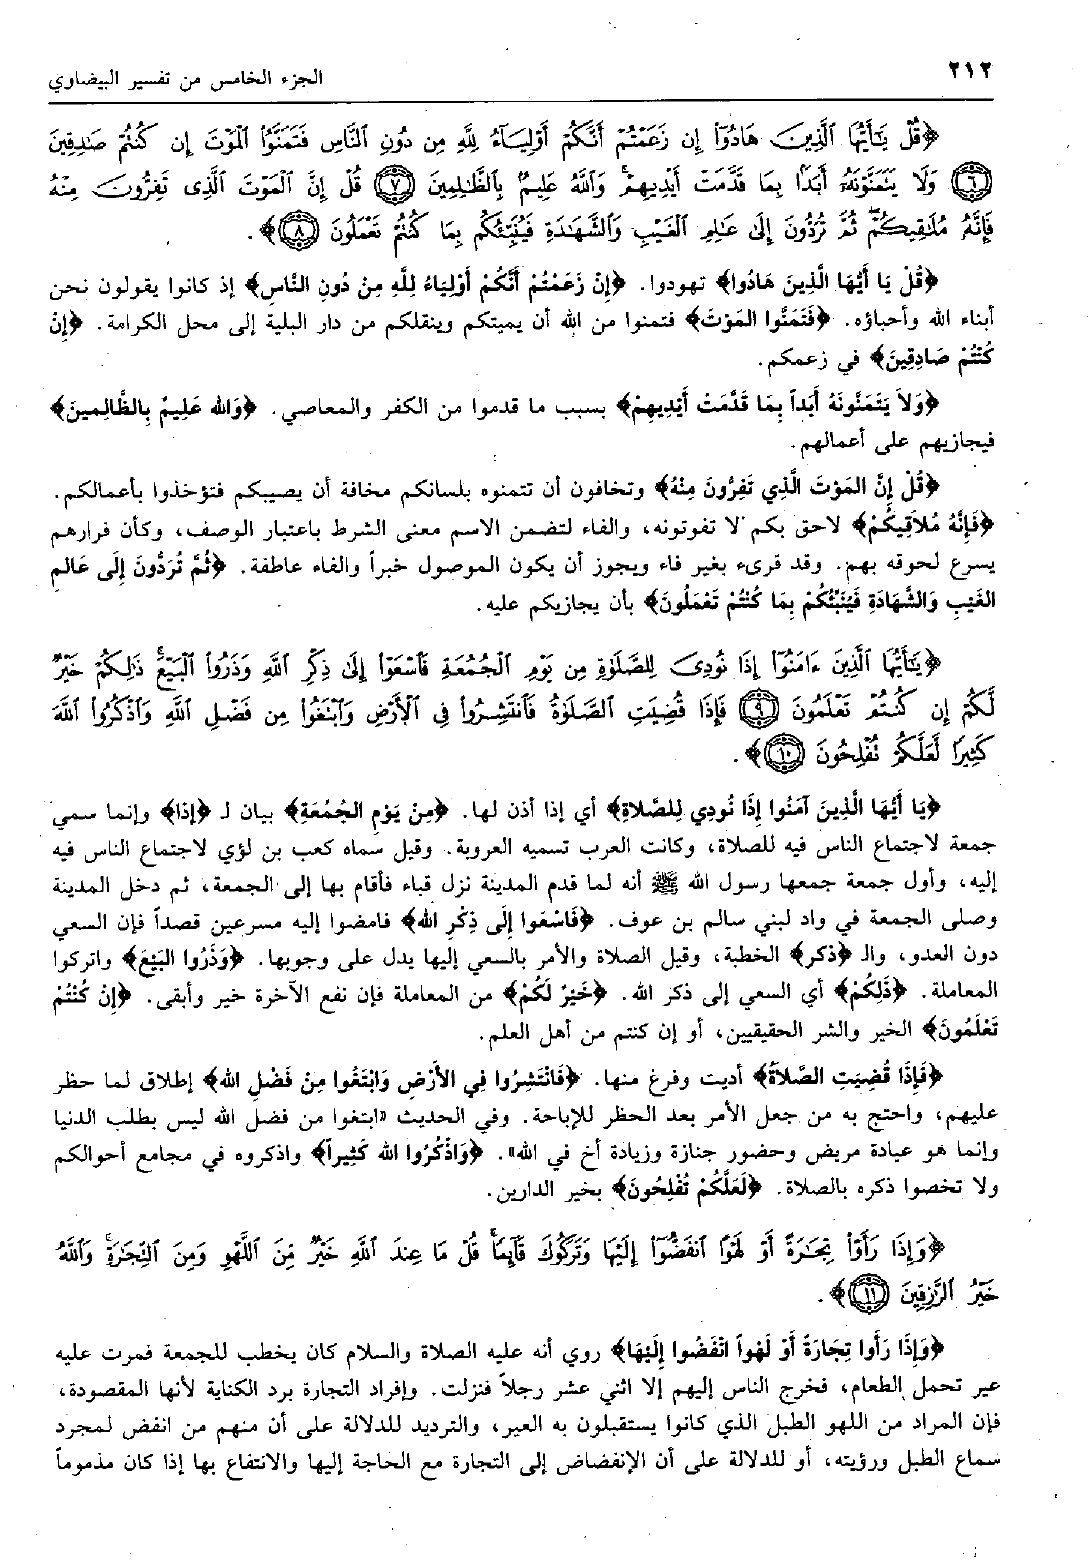 ٢١٢
الجزء الخامس من تفسير البيضاوي
﴿قُلْ يَٰٓأَيُّهَا ٱلَّذِينَ هَادُوٓا۟ إِن زَعَمْتُمْ أَنَّكُمْ أَوْلِيَآءُ لِلَّهِ مِن دُونِ ٱلنَّاسِ فَتَمَنَّوُا۟ ٱلْمَوْتَ إِن كُنتُمْ صَٰدِقِينَ
﴿٦﴾ وَلَا يَتَمَنَّوْنَهُۥٓ أَبَدًۢا بِمَا قَدَّمَتْ أَيْدِيهِمْ ۚ وَٱللَّهُ عَلِيمٌۢ بِٱلظَّٰلِمِينَ ﴿٧﴾ قُلْ إِنَّ ٱلْمَوْتَ ٱلَّذِى تَفِرُّونَ مِنْهُ
فَإِنَّهُۥ مُلَٰقِيكُمْ ۖ ثُمَّ تُرَدُّونَ إِلَىٰ عَٰلِمِ ٱلْغَيْبِ وَٱلشَّهَٰدَةِ فَيُنَبِّئُكُم بِمَا كُنتُمْ تَعْمَلُونَ ﴿٨﴾﴾.
﴿قُلْ يَا أَيُّهَا الَّذِينَ هَادُوا﴾ تهودوا. ﴿إِنْ زَعَمْتُمْ أَنَّكُمْ أَوْلِيَاءُ لِلَّهِ مِنْ دُونِ النَّاسِ﴾ إذ كانوا يقولون نحن
أبناء الله وأحباؤه. ﴿فَتَمَنَّوا المَوْتَ﴾ فتمنوا من الله أن يميتكم وينقلكم من دار البلية إلى محل الكرامة. ﴿إِنْ
كُنْتُمْ صَادِقِينَ﴾ في زعمكم.
﴿وَلاَ يَتَمَنَّونَهُ أَبَداً بِمَا قَدَّمَتْ أَيْدِيهِمْ﴾ بسبب ما قدموا من الكفر والمعاصي. ﴿وَالله عَلِيمٌ بِالظَّالِمينَ﴾
فيجازيهم على أعمالهم.
﴿قُلْ إِنَّ المَوْتَ الَّذِي تَفِرُّونَ مِنْهُ﴾ وتخافون أن تتمنوه بلسانكم مخافة أن يصيبكم فتؤخذوا بأعمالكم.
﴿فَإِنَّهُ مُلاَقِيكُمْ﴾ لاحق بكم لا تفوتونه، والفاء لتضمن الاسم معنى الشرط باعتبار الوصف، وكأن فرارهم
يسرع لحوقه بهم. وقد قرىء بغير فاء ويجوز أن يكون الموصول خبراً والفاء عاطفة. ﴿ثُمَّ تُرَدُّونَ إِلَى عَالِمِ
الغَيْبِ وَالشَّهَادَةِ فَيُنَبِّئُكُمْ بِمَا كُنْتُمْ تَعْمَلُونَ﴾ بأن يجازيكم عليه.
﴿يَٰٓأَيُّهَا ٱلَّذِينَ ءَامَنُوٓا۟ إِذَا نُودِىَ لِلصَّلَوٰةِ مِن يَوْمِ ٱلْجُمُعَةِ فَٱسْعَوْا۟ إِلَىٰ ذِكْرِ ٱللَّهِ وَذَرُوا۟ ٱلْبَيْعَ ۚ ذَٰلِكُمْ خَيْرٌ
لَّكُمْ إِن كُنتُمْ تَعْلَمُونَ ﴿٩﴾ فَإِذَا قُضِيَتِ ٱلصَّلَوٰةُ فَٱنتَشِرُوا۟ فِى ٱلْأَرْضِ وَٱبْتَغُوا۟ مِن فَضْلِ ٱللَّهِ وَٱذْكُرُوا۟ ٱللَّهَ
كَثِيرًا لَّعَلَّكُمْ تُفْلِحُونَ ﴿١٠﴾﴾.
﴿يَا أَيُّهَا الَّذِينَ آمَنُوا إِذَا نُودِي لِلصَّلاةِ﴾ أي إذا أذن لها. ﴿مِنْ يَوْمِ الجُمُعَةِ﴾ بيان لـ ﴿إذا﴾ وإنما سمي
جمعة لاجتماع الناس فيه للصلاة، وكانت العرب تسميه العروبة. وقيل سماه كعب بن لؤي لاجتماع الناس فيه
إليه، وأول جمعة جمعها رسول الله ﷺ أنه لما قدم المدينة نزل قباء فأقام بها إلى الجمعة، ثم دخل المدينة
وصلى الجمعة في واد لبني سالم بن عوف. ﴿فَاسْعَوا إِلَى ذِكْرِ الله﴾ فامضوا إليه مسرعين قصداً فإن السعي
دون العدو، والـ ﴿ذكر﴾ الخطبة، وقيل الصلاة والأمر بالسعي إليها يدل على وجوبها. ﴿وَذَرُوا البَيْعَ﴾ واتركوا
المعاملة. ﴿ذَلِكُمْ﴾ أي السعي إلى ذكر الله. ﴿خَيْرٌ لَكُمْ﴾ من المعاملة فإن نفع الآخرة خير وأبقى. ﴿إِنْ كُنْتُمْ
تَعْلَمُونَ﴾ الخير والشر الحقيقيين، أو إن كنتم من أهل العلم.
﴿فَإِذَا قُضِيَتِ الصَّلاَةُ﴾ أديت وفرغ منها. ﴿فَانْتَشِرُوا فِي الأَرْضِ وَابْتَغُوا مِنْ فَضْلِ الله﴾ إطلاق لما حظر
عليهم، واحتج به من جعل الأمر بعد الحظر للإباحة. وفي الحديث «ابتغوا من فضل الله ليس بطلب الدنيا
وإنما هو عيادة مريض وحضور جنازة وزيادة أخ في الله». ﴿وَاذْكُرُوا الله كَثِيراً﴾ واذكروه في مجامع أحوالكم
ولا تخصوا ذكره بالصلاة. ﴿لَعَلَّكُمْ تُفْلِحُونَ﴾ بخير الدارين.
﴿وَإِذَا رَأَوْا۟ تِجَٰرَةً أَوْ لَهْوًا ٱنفَضُّوٓا۟ إِلَيْهَا وَتَرَكُوكَ قَآئِمًا ۚ قُلْ مَا عِندَ ٱللَّهِ خَيْرٌ مِّنَ ٱللَّهْوِ وَمِنَ ٱلتِّجَٰرَةِ ۚ وَٱللَّهُ
خَيْرُ ٱلرَّٰزِقِينَ ﴿١١﴾﴾.
﴿وَإِذَا رَأَوا تِجَارَةً أَوْ لَهْواً انْفَضُوا إِلَيْهَا﴾ روي أنه عليه الصلاة والسلام كان يخطب للجمعة فمرت عليه
عير تحمل الطعام، فخرج الناس إليهم إلا اثني عشر رجلاً فنزلت. وإفراد التجارة برد الكناية لأنها المقصودة،
فإن المراد من اللهو الطبل الذي كانوا يستقبلون به العير، والترديد للدلالة على أن منهم من انفض لمجرد
سماع الطبل ورؤيته، أو للدلالة على أن الإنفضاض إلى التجارة مع الحاجة إليها والانتفاع بها إذا كان مذموماً